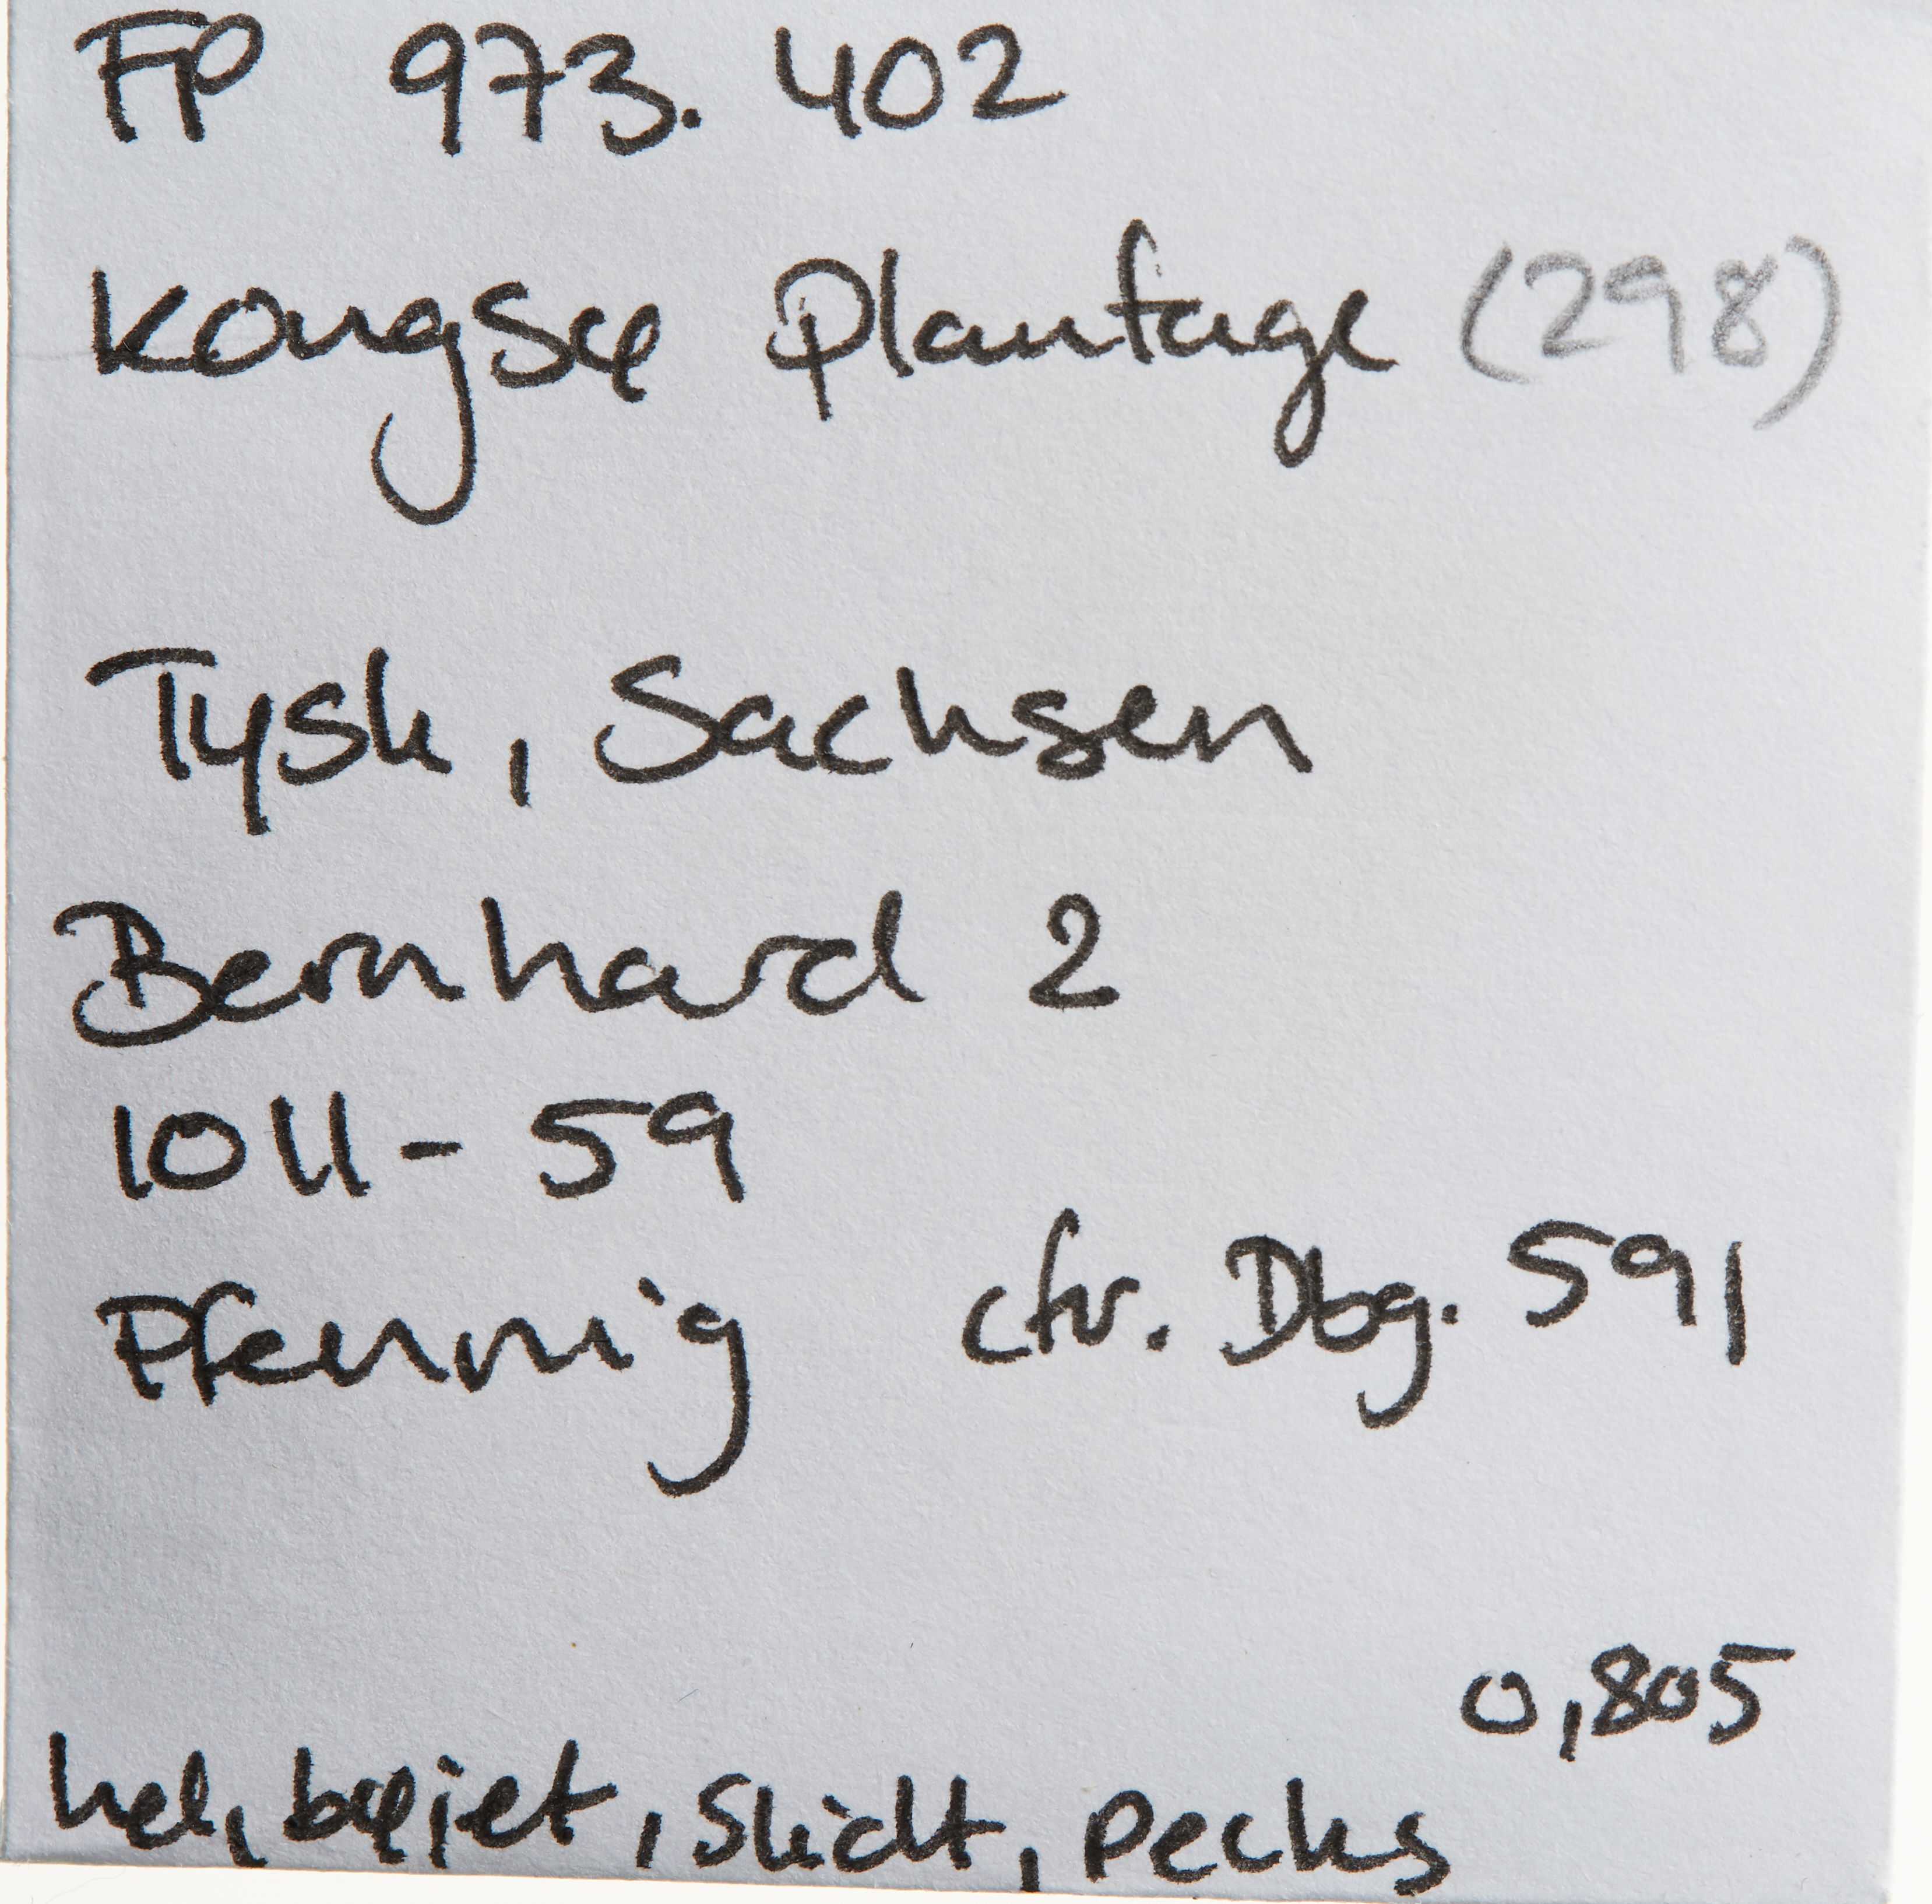 FP 973.402
Kongsø Plantage (298)
Tysk, Sachsen
Bernhard 2
1011-59
Pfennig cfr. Dbg. 591
0,805
hel, bøjet, Slidt, Pecks